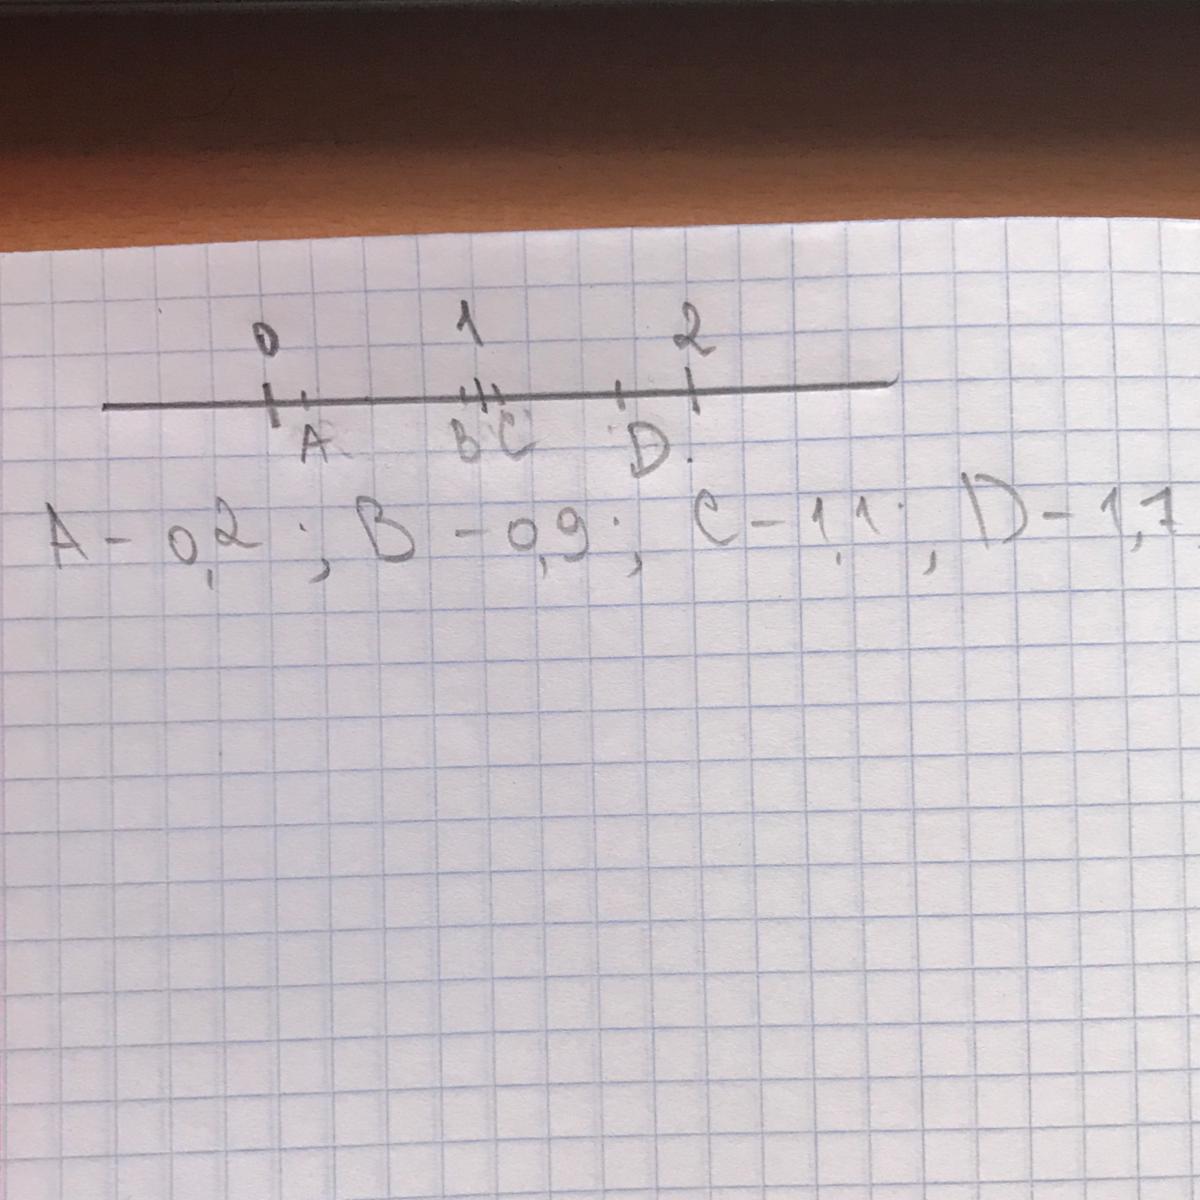 0 1 2
A B C D
A - 0,2 ; B - 0,9 ; C - 1,1 ; D - 1,7